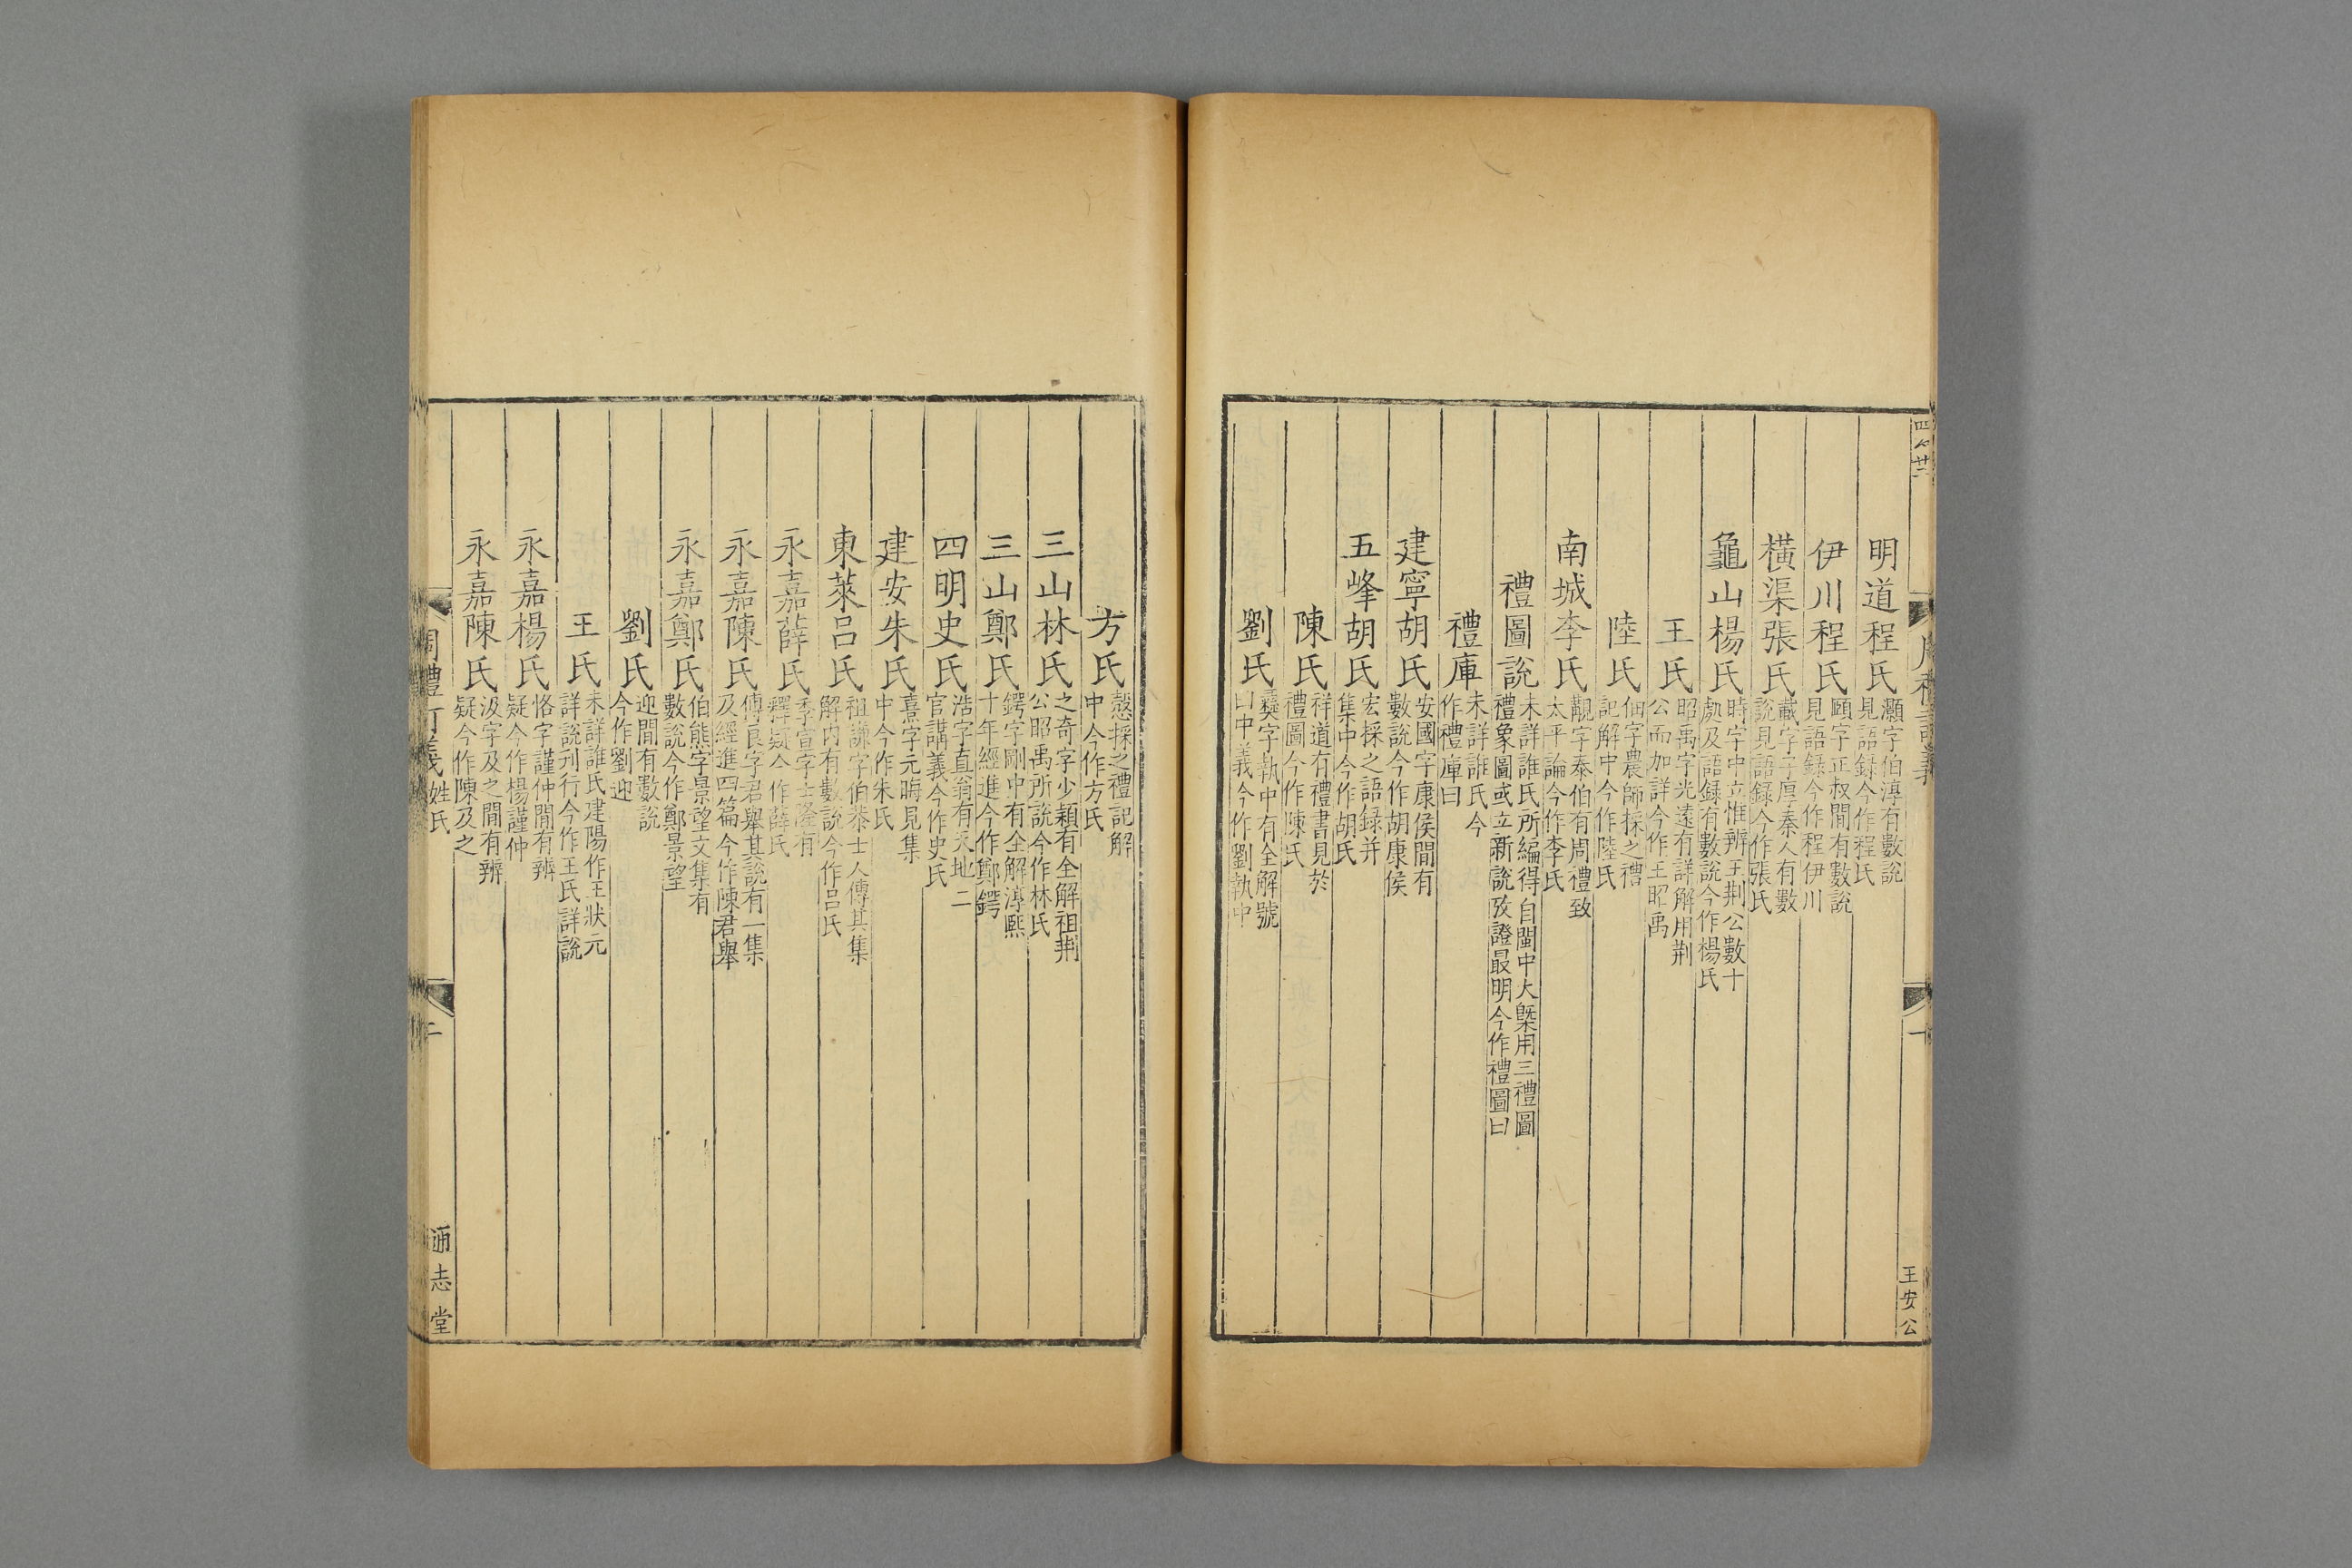 明道程氏 灝字伯淳有數說見語録今作程氏
伊川程氏 頤字正叔間有數說見語録今作程伊川
橫渠張氏 載字子厚秦人有數說見語録今作張氏
龜山楊氏 時字中立惟辨王荆公數十處及語録有數說今作楊氏
王氏 昭禹字光遠有詳解用荆公而加詳今作王昭禹
陸氏 佃字農師採之禮記解中今作陸氏
南城李氏 覯字泰伯有周禮致太平論今作李氏
禮圖說 未詳誰氏所編得自閩中大槩用三禮圖禮象圖或立新說攷證最明今作禮圖曰
禮庫 未詳誰氏今作禮庫曰
建寧胡氏 安國字康侯間有數說今作胡康侯
五峰胡氏 宏採之語録并集中今作胡氏
陳氏 祥道有禮書見於禮圖今作陳氏
劉氏 彝字執中有全解號曰中義今作劉執中
周禮訂義
一
王安公
方氏 愨採之禮記解中今作方氏
三山林氏 之奇字少穎有全解祖荆公昭禹所說今作林氏
三山鄭氏 鍔字剛中有全解淳熙十年經進今作鄭鍔
四明史氏 浩字直翁有天地二官講義今作史氏
建安朱氏 熹字元晦見集中今作朱氏
東萊呂氏 祖謙字伯恭士人傳其集解内有數說今作呂氏
永嘉薛氏 季宣字士隆有釋疑今作薛氏
永嘉陳氏 傅良字君舉其說有一集及經進四篇今作陳君舉
永嘉鄭氏 伯熊字景望文集有數說今作鄭景望
劉氏 迎間有數說今作劉迎
王氏 未詳誰氏建陽作王狀元詳說刋行今作王氏詳說
永嘉楊氏 恪字謹仲間有辨疑今作楊謹仲
永嘉陳氏 汲字及之間有辨疑今作陳及之
周禮訂義 姓氏
二
通志堂